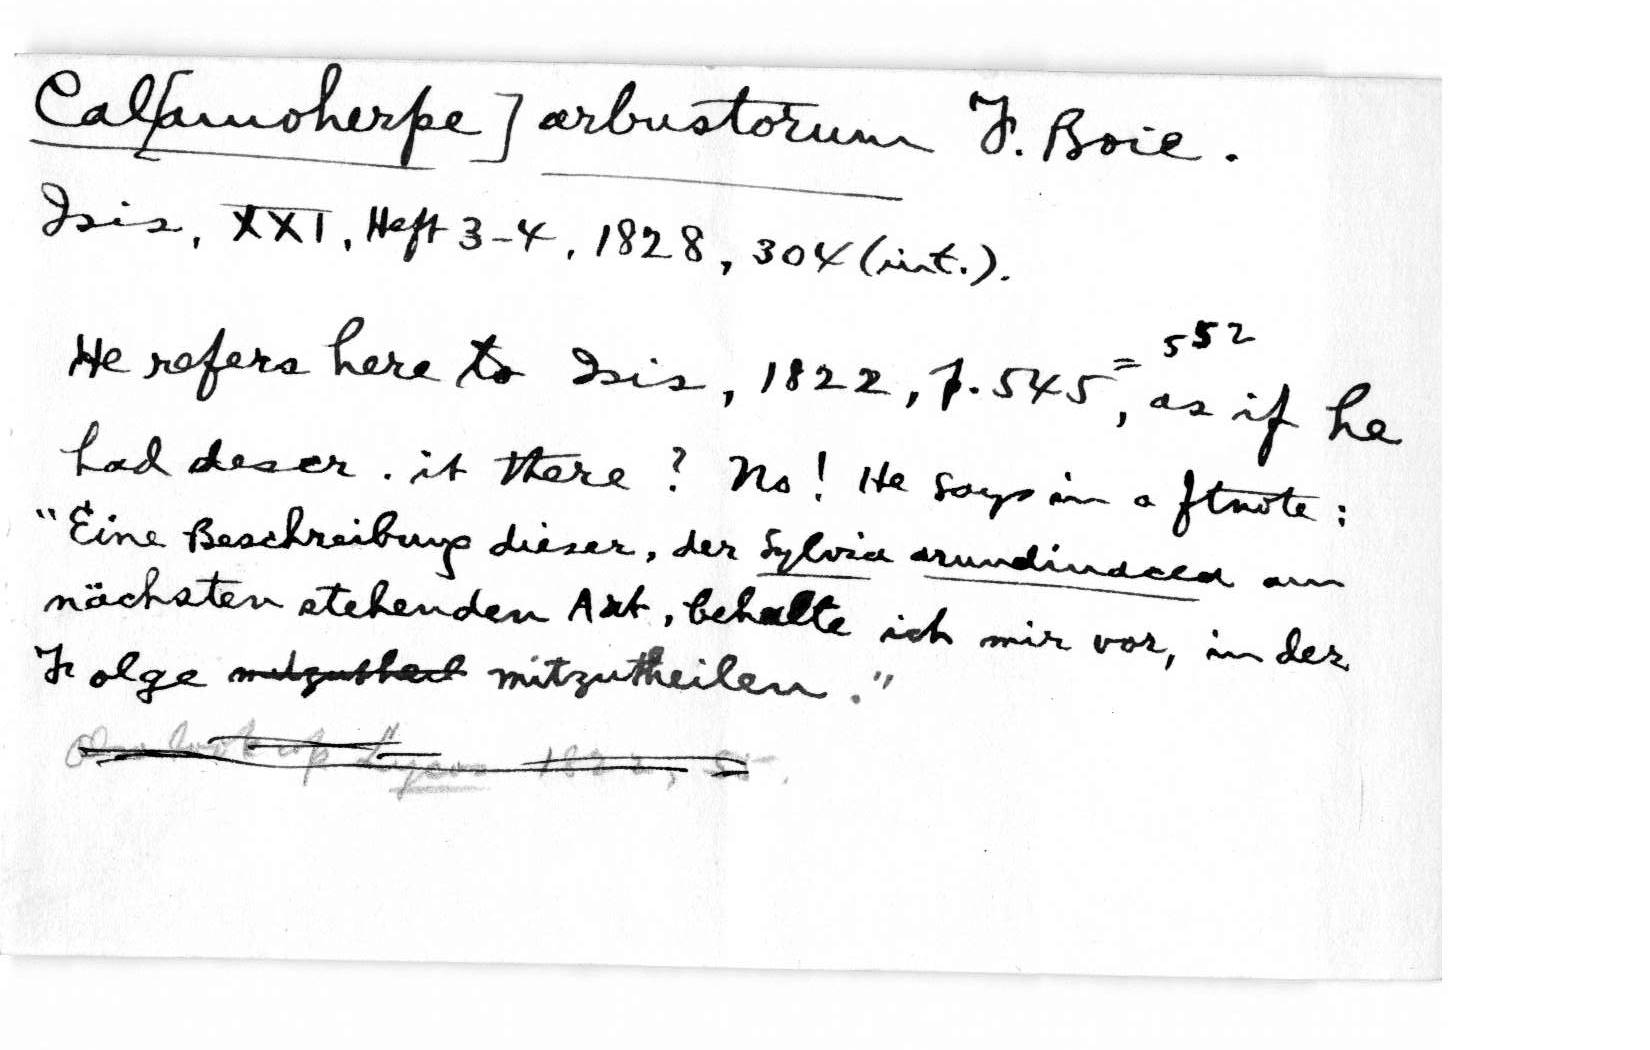 Cal[amoherpe] arbustorum F. Boie.
Isis, XXI, Heft 3-4, 1828, 304 (int.).
He refers here to Isis, 1822, p. 545 = 552, as if he
had descr. it there? No! He says in a ftnote:
"Eine Beschreibung dieser, der Sylvia arundinacea am
nächsten stehenden Art, behalte ich mir vor, in der
Folge mitzutheilen."